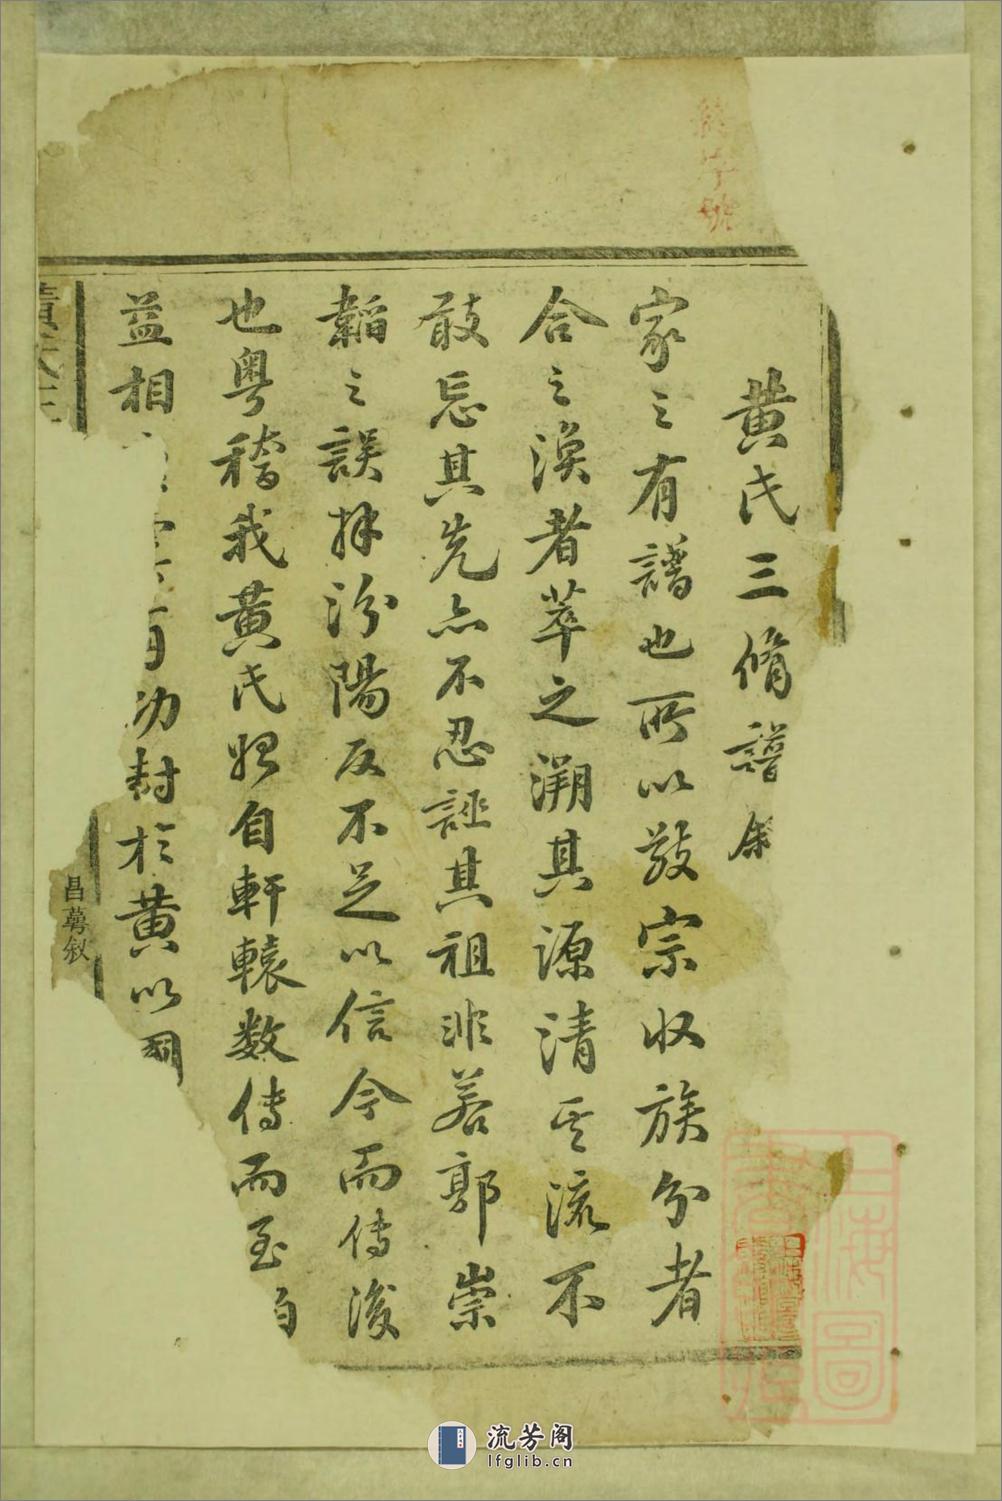 黄氏三脩譜
家之有譜也所以敬宗収族分者
合之渙者萃之溯其源清其流不
敢忘其先亦不忍誣其祖非若郭崇
韜之誤拜汾陽反不足以信今而傳後
也粤稽我黄氏始自軒轅数傳而至伯
益相 有功封於黄以國
昌萼叙
流芳阁
lfglib.cn